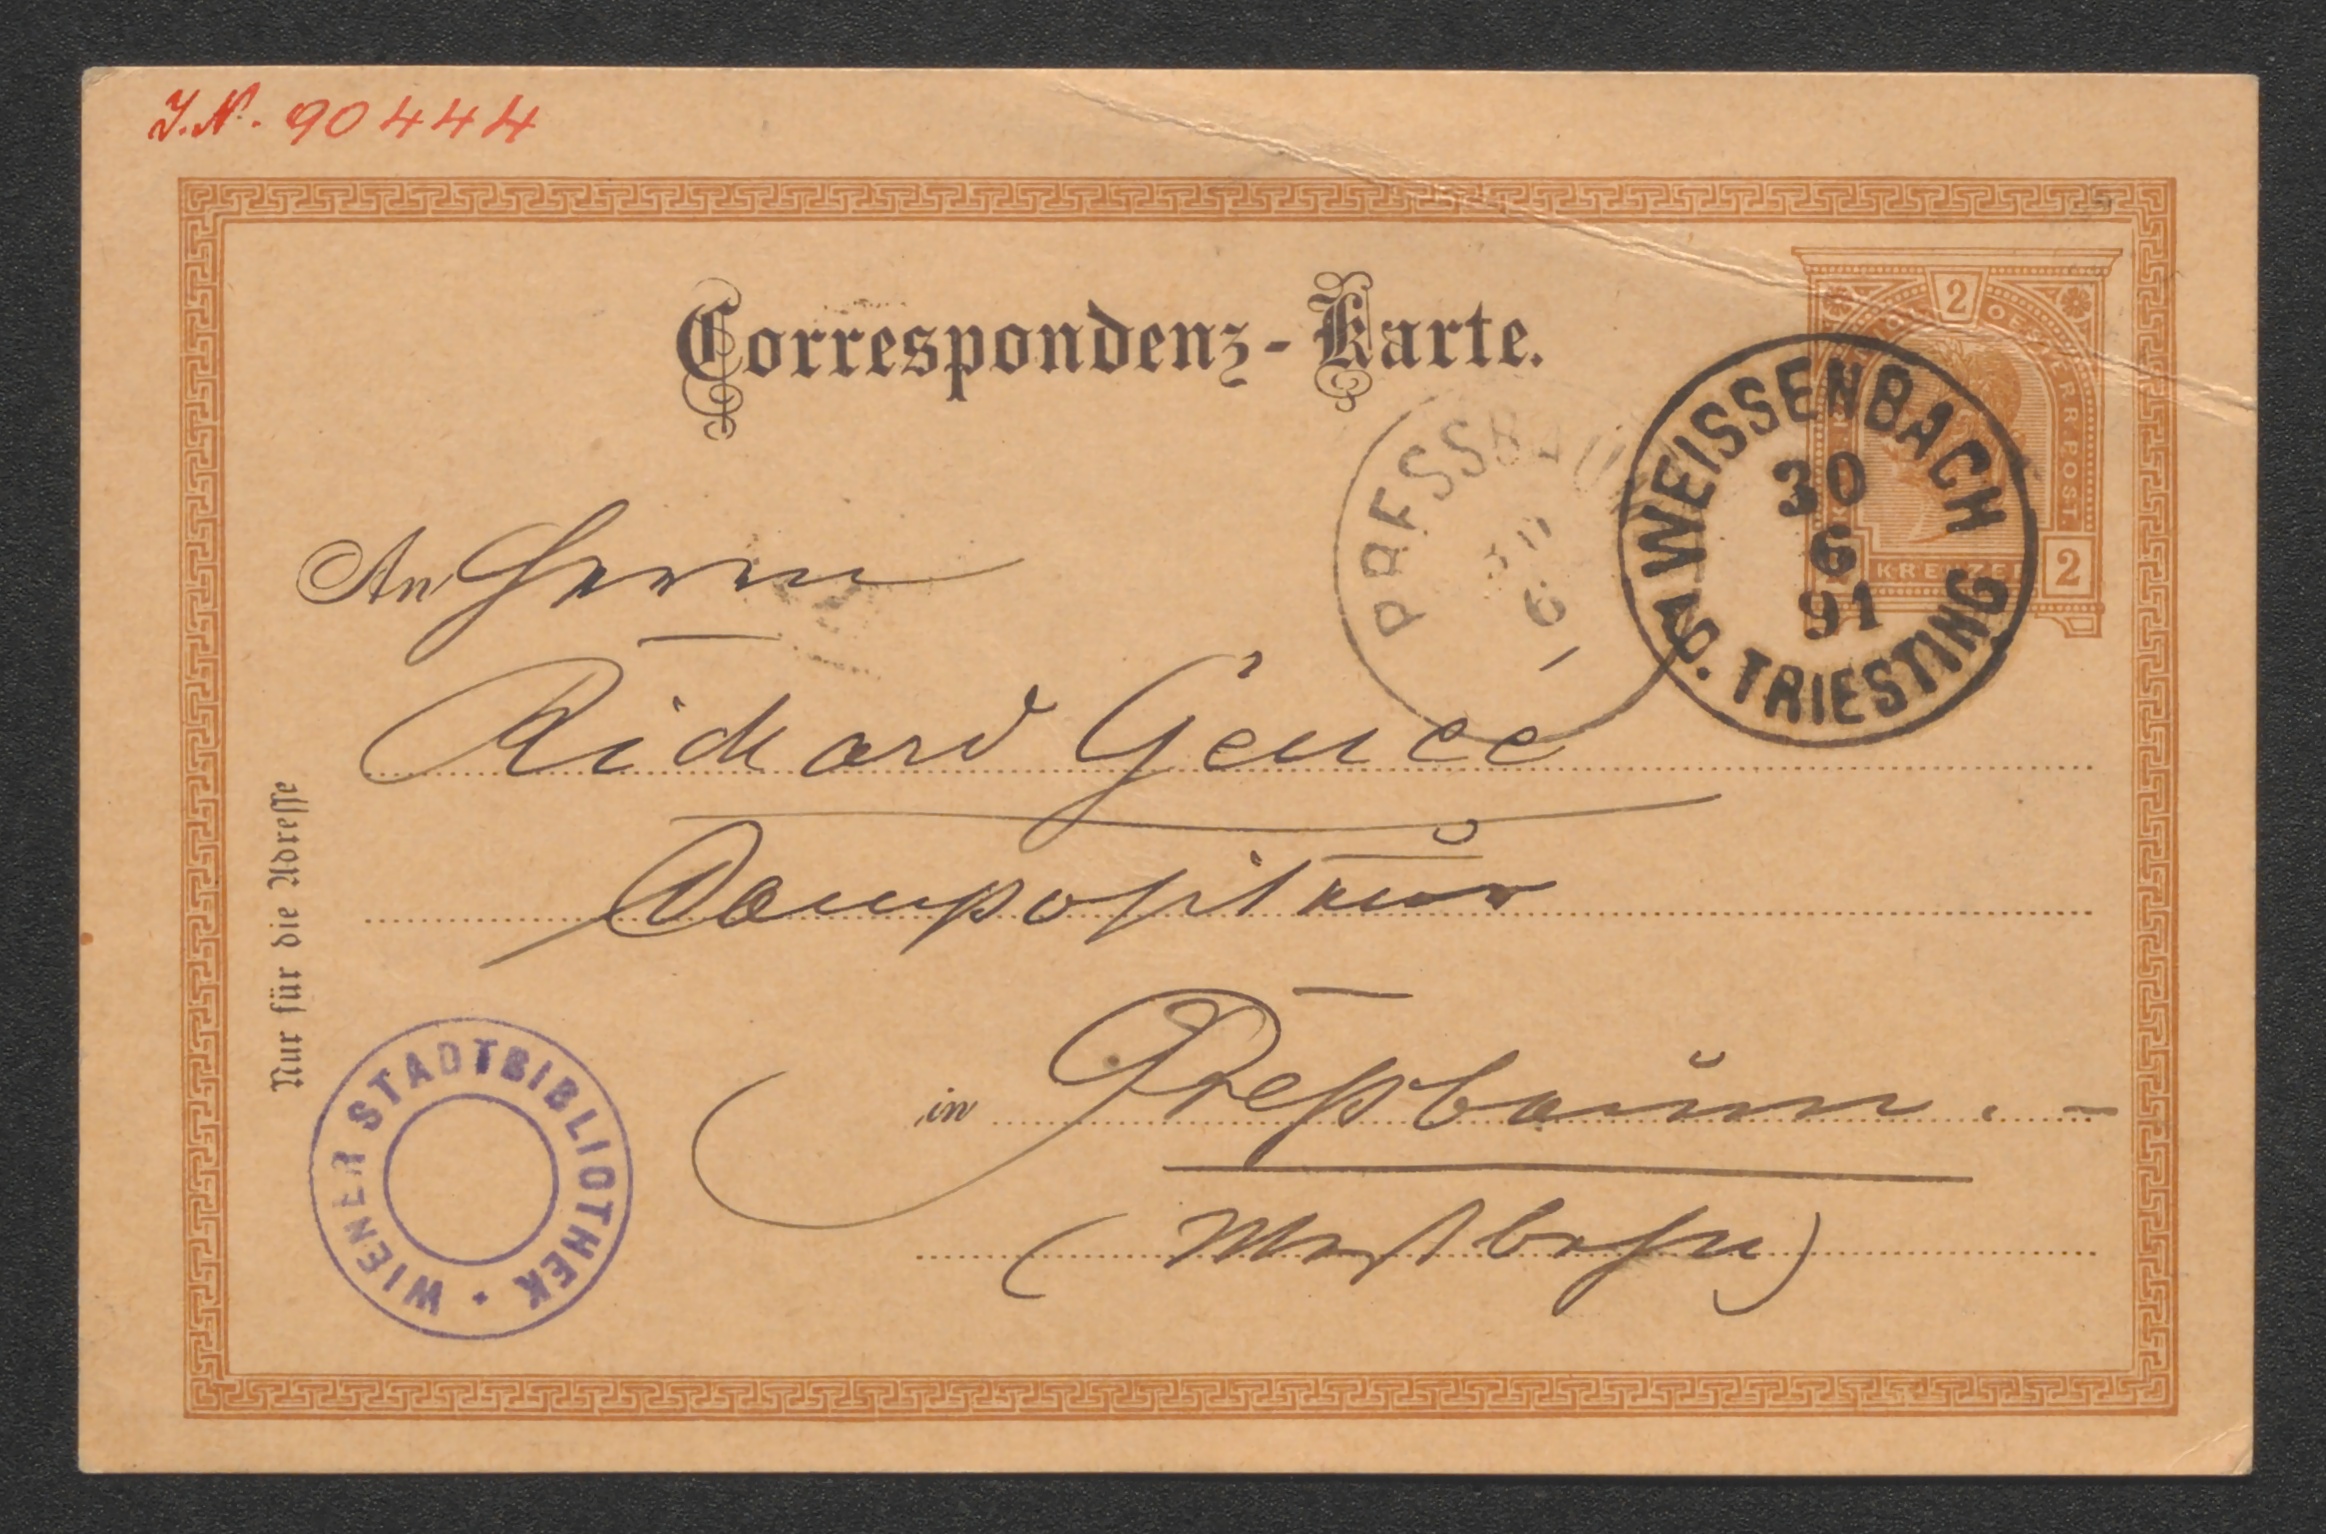 J.N. 90444
Correspondenz-Karte.
2
KREUZER
2
WEISSENBACH
A.D. TRIESTING
30
6
91
PRESSBAUM
30
6
An Herrn
Richard Genée
Compositeur
in Preßbaum.
(Westbahn)
Nur für die Adresse
WIENER STADTBIBLIOTHEK